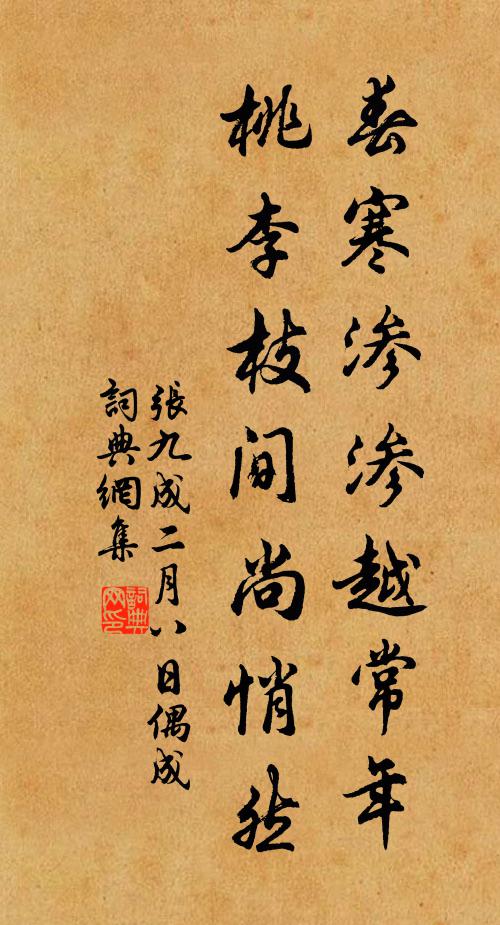 春寒渗渗越常年
桃李枝间尚悄然
張九成二月八日偶成
詞典網集
詞典网印